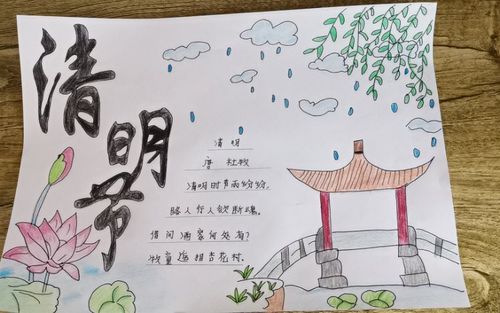 清明节
清明
唐 杜牧
清明时节雨纷纷,
路人行人欲断魂。
借问酒家何处有?
牧童遥指杏花村.